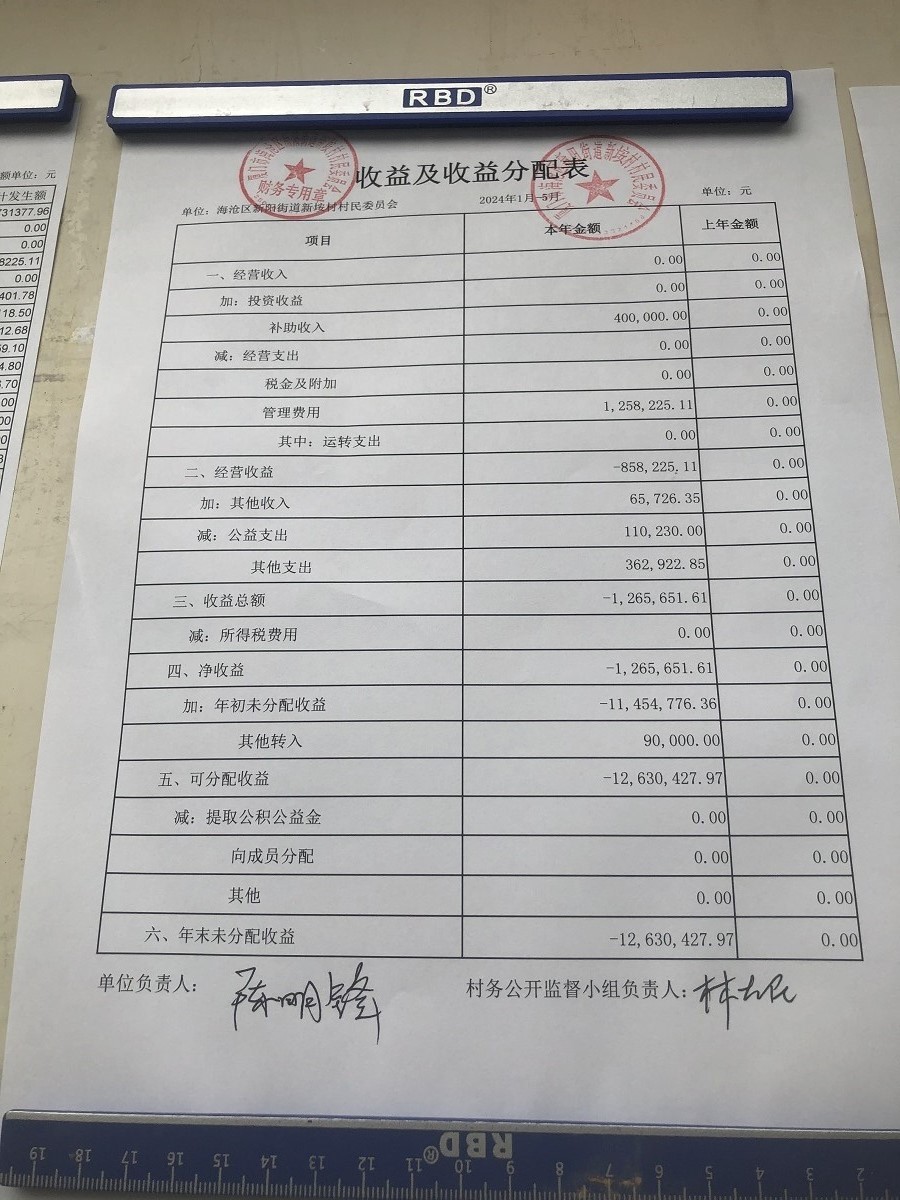 RBD®
额单位：元
计发生额
731377.96
0.00
0.00
8225.11
0.00
401.78
118.50
12.68
59.10
4.80
财务专用章
收益及收益分配表
单位：海沧区新阳街道新垵村村民委员会 2024年1月-5月 单位：元
项目 本年金额 上年金额
一、经营收入 0.00 0.00
加：投资收益 0.00 0.00
补助收入 400,000.00 0.00
减：经营支出 0.00 0.00
税金及附加 0.00 0.00
管理费用 1,258,225.11 0.00
其中：运转支出 0.00 0.00
二、经营收益 -858,225.11 0.00
加：其他收入 65,726.35 0.00
减：公益支出 110,230.00 0.00
其他支出 362,922.85 0.00
三、收益总额 -1,265,651.61 0.00
减：所得税费用 0.00 0.00
四、净收益 -1,265,651.61 0.00
加：年初未分配收益 -11,454,776.36 0.00
其他转入 90,000.00 0.00
五、可分配收益 -12,630,427.97 0.00
减：提取公积公益金 0.00 0.00
向成员分配 0.00 0.00
其他 0.00 0.00
六、年末未分配收益 -12,630,427.97 0.00
单位负责人： 村务公开监督小组负责人：
RBD®
19 18 17 16 15 14 13 12 11 10 9 8 7 6 5 4 3 2